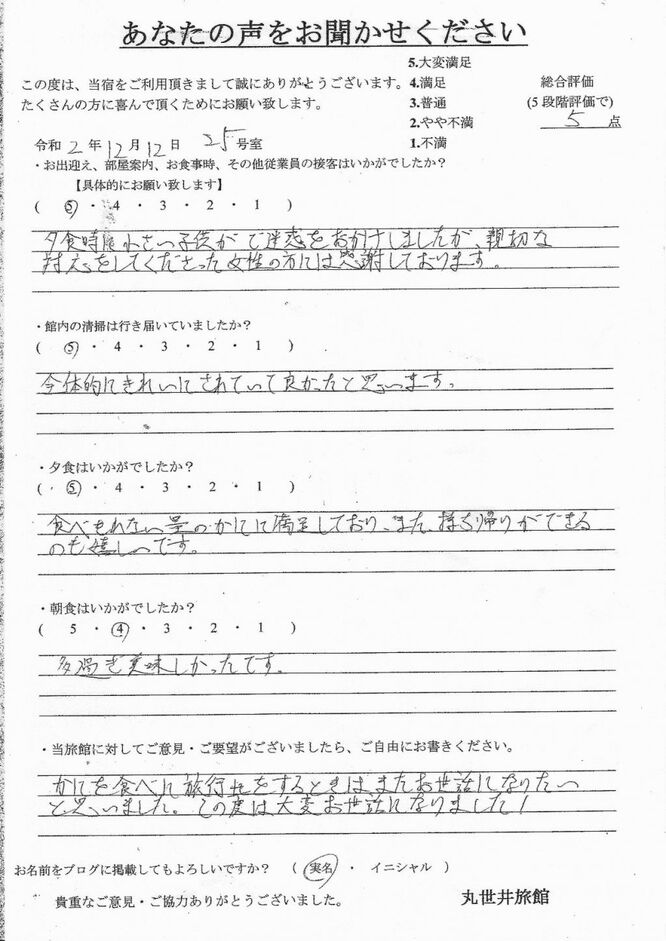 あなたの声をお聞かせください
この度は、当宿をご利用頂きまして誠にありがとうございます。
たくさんの方に喜んで頂くためにお願い致します。
5.大変満足
4.満足
3.普通
2.やや不満
1.不満
総合評価
(5段階評価で)
5 点
令和 2 年 12 月 12 日 25 号室
・お出迎え、部屋案内、お食事時、その他従業員の接客はいかがでしたか?
【具体的にお願い致します】
( ⑤ ・ 4 ・ 3 ・ 2 ・ 1 )
夕食時に小さい子供がご迷惑をおかけしましたが、親切な
対応をしてくださった女性の方には感謝しております。
・館内の清掃は行き届いていましたか?
( ⑤ ・ 4 ・ 3 ・ 2 ・ 1 )
全体的にきれいにされていて良かったと思います。
・夕食はいかがでしたか?
( ⑤ ・ 4 ・ 3 ・ 2 ・ 1 )
食べきれない量のかにに満足しており、また、持ち帰りができる
のも嬉しいです。
・朝食はいかがでしたか?
( 5 ・ ④ ・ 3 ・ 2 ・ 1 )
美味しかったです。
・当旅館に対してご意見・ご要望がございましたら、ご自由にお書きください。
かにを食べに旅行をするときは、またお世話になりたい
と思いました。この度は大変お世話になりました!
お名前をブログに掲載してもよろしいですか? ( 実名 ・ イニシャル )
貴重なご意見・ご協力ありがとうございました。
丸世井旅館